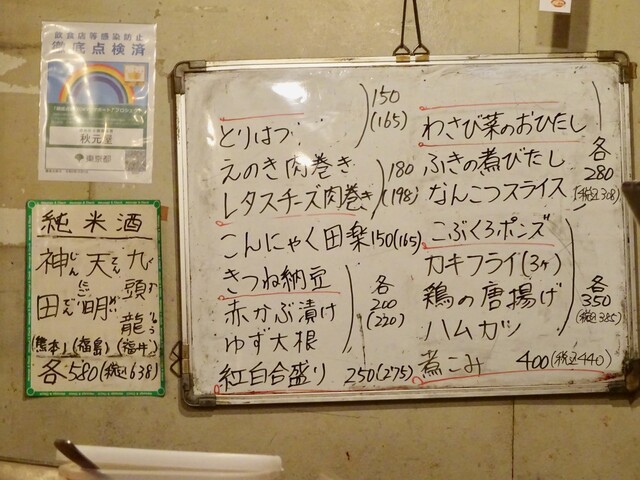 飲食店等感染防止
徹底点検済
秋元屋
東京都
純米酒
九頭龍 (福井)
天明 (福島)
神田 (熊本)
各580(税込638)
とりはつ
150
(165)
えのき肉巻き
レタスチーズ肉巻き
180
(198)
こんにゃく田楽150(165)
きつね納豆
赤かぶ漬け
ゆず大根
各
200
(220)
紅白合盛り 250(275)
わさび菜のおひたし
ふきの煮びたし
なんこつスライス
各
280
(税込308)
こぶくろポンズ
カキフライ(3ヶ)
鶏の唐揚げ
ハムカツ
各
350
(税込385)
煮こみ 400(税込440)